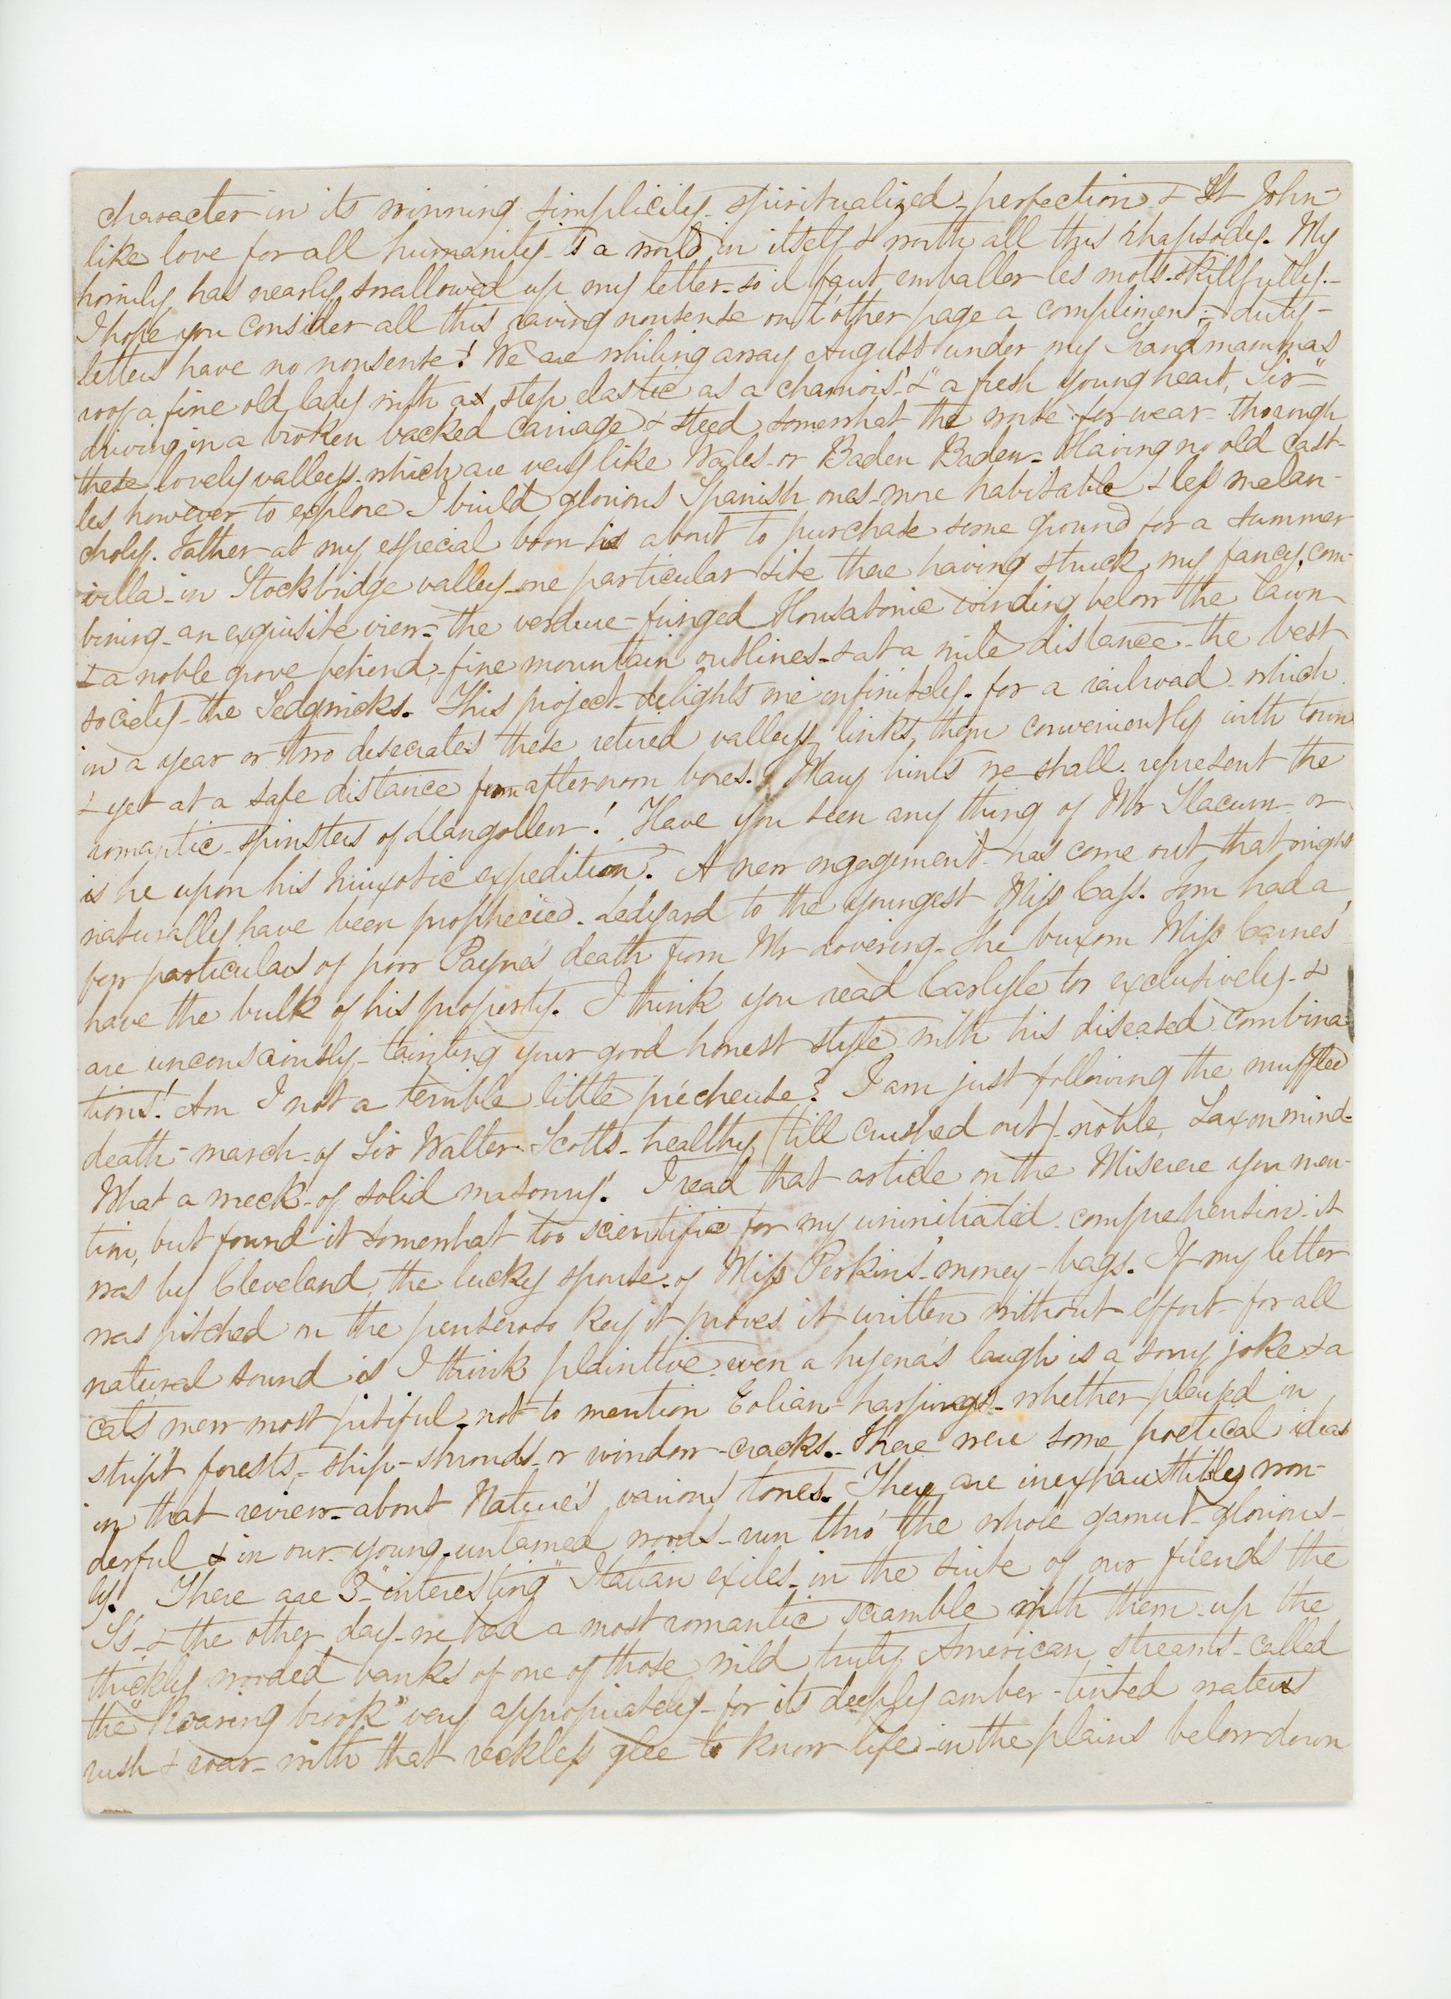 character in its winning simplicity - spiritualized - perfection & St John-
like love for all humanity - is a world in itself & worth all this rhapsody. My
homily has nearly swallowed up my letter - so il faut emballer les mots skillfully. -
I hope you consider all this raving nonsense on t'other page a compliment; - duty -
letters have no nonsense! We are whiling away August under my Grandmammas
roof a fine old lady with a step elastic as a chamois' & "a fresh young heart, Sir" =
driving in a broken backed carriage & steed somewhat the worse for wear - thorough
these lovely valleys - which are very like Wales - or Baden Baden - Having no old cast-
les however to explore I build glorious Spanish ones - more habitable & less melan-
choly. Father at my especial boon is about to purchase some ground for a summer
villa - in Stockbridge valley - one particular site there having struck my fancy, com-
bining - an exquisite view - the verdure - fringed Housatonic winding below the lawn
& a noble grove behind, - fine mountain outlines - & at a mile distance - the best
society - the Sedgwicks. This project delights me infinitely - for a railroad - which
in a year or two desecrates these retired valleys, links them conveniently with town
& yet at a safe distance from afternoon bores. Many hints we shall represent the
romantic - spinsters of Llangollen! Have you seen any thing of Mr Slacum - or
is he upon his Quixotic expedition? A new engagement - has come out that might
naturally have been prophecied - Ledyard to the youngest Miss Cass. Tom had a
few particulars of poor Payne's death from Mr Lovering - the buxom Miss Caines'
have the bulk of his property. I think you read Carlyle too exclusively - &
are unconsciously - tainting your good honest style with his diseased combina-
tions! Am I not a terrible little prêcheuse? I am just following the muffled
death - march - of Sir Walter Scotts - healthy (till crushed out) - noble, Saxon mind -
What a wreck - of solid masonry! I read that article on the Miserere you men-
tion, but found it somewhat too scientific for my uninitiated - comprehension - it
was by Cleveland, the lucky spouse - of Miss Perkins' - money - bags. If my letter
was pitched on the penseroso key it proves it written without effort - for all
natural sound is I think plaintive - even a hyena's laugh is a sorry joke & a
cats mew most pitiful - not to mention Eolian - harpings - whether played in
stript forests - ship - shrouds - or window - cracks. - There were some poetical ideas
in that review - about Nature's various tones. They are inexhaustibly won-
derful & in our young - untamed woods - run thro' the whole gamut - glorious-
ly! There are 3 - "interesting" Italian exiles - in the suite of our friends the
S's - & the other day - we had a most romantic scramble with them - up the
thickly wooded banks of one of those wild truly American streams - called
the "Roaring brook" very appropriately - for its deeply amber - tinted waters
rush & roar - with that reckless glee to know life - in the plains below down